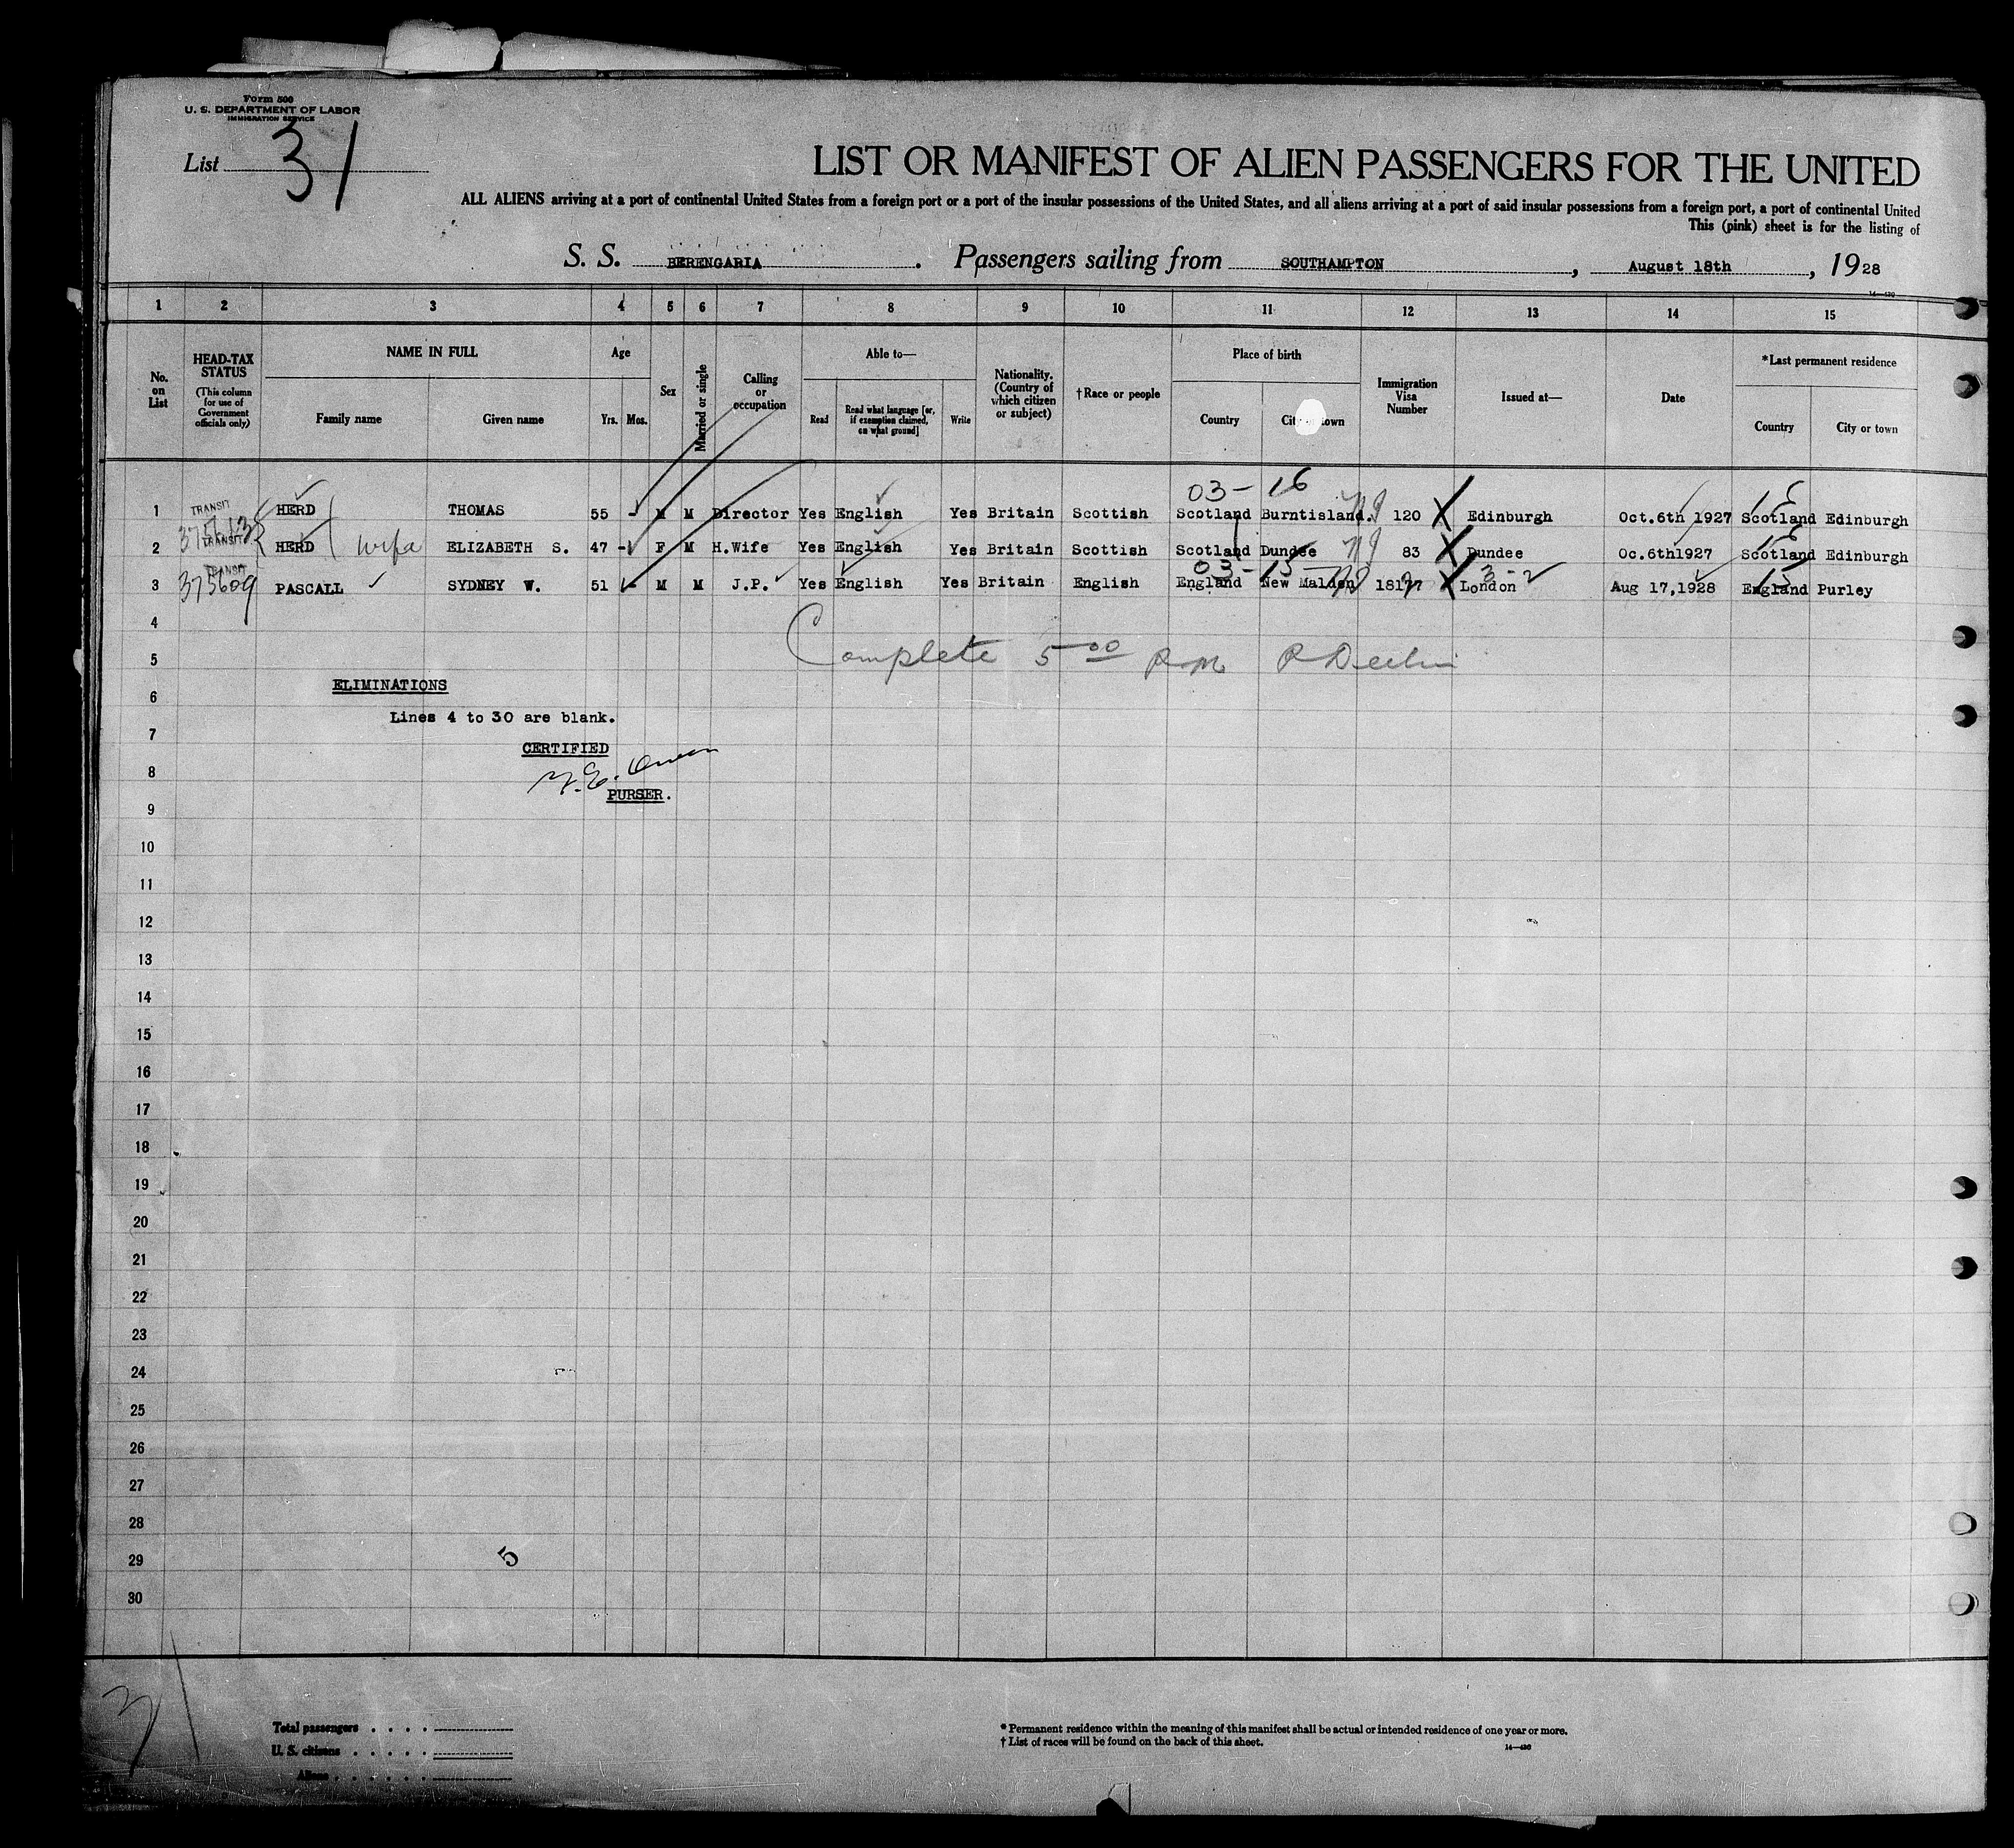 Form 500
U. S. DEPARTMENT OF LABOR
IMMIGRATION SERVICE
List 31
LIST OR MANIFEST OF ALIEN PASSENGERS FOR THE UNITED
ALL ALIENS arriving at a port of continental United States from a foreign port or a port of the insular possessions of the United States, and all aliens arriving at a port of said insular possessions from a foreign port, a port of continental United
This (pink) sheet is for the listing of
S. S. BERENGARIA. Passengers sailing from SOUTHAMPTON, August 18th, 1928
1 2 3 4 5 6 7 8 9 10 11 12 13 14 15
No. on List
HEAD-TAX STATUS
(This column for use of Government officials only)
NAME IN FULL
Family name
Given name
Age
Yrs. Mos.
Sex
Married or single
Calling or occupation
Able to—
Read
Read what language [or, if exemption claimed, on what ground]
Write
Nationality. (Country of which citizen or subject)
†Race or people
Place of birth
Country
City or town
Immigration Visa Number
Issued at—
Date
*Last permanent residence
Country
City or town
03-16
1 TRANSIT HERD THOMAS 55 - M M Director Yes English Yes Britain Scottish Scotland Burntisland. 120 Edinburgh Oct.6th 1927 Scotland Edinburgh
2 TRANSIT HERD wife ELIZABETH S. 47 - F M H.Wife Yes English Yes Britain Scottish Scotland Dundee 83 Dundee Oc.6th1927 Scotland Edinburgh
03-15
3 TRANSIT 375609 PASCALL SYDNEY W. 51 - M M J.P. Yes English Yes Britain English England New Malden 18177 London 3-2 Aug 17,1928 England Purley
4
Complete 5 00 P.M
5
ELIMINATIONS
6
Lines 4 to 30 are blank.
7
CERTIFIED
8
PURSER.
9
10
11
12
13
14
15
16
17
18
19
20
21
22
23
24
25
26
27
28
29
5
30
31
Total passengers
U. S. citizens
Aliens
* Permanent residence within the meaning of this manifest shall be actual or intended residence of one year or more.
† List of races will be found on the back of this sheet.